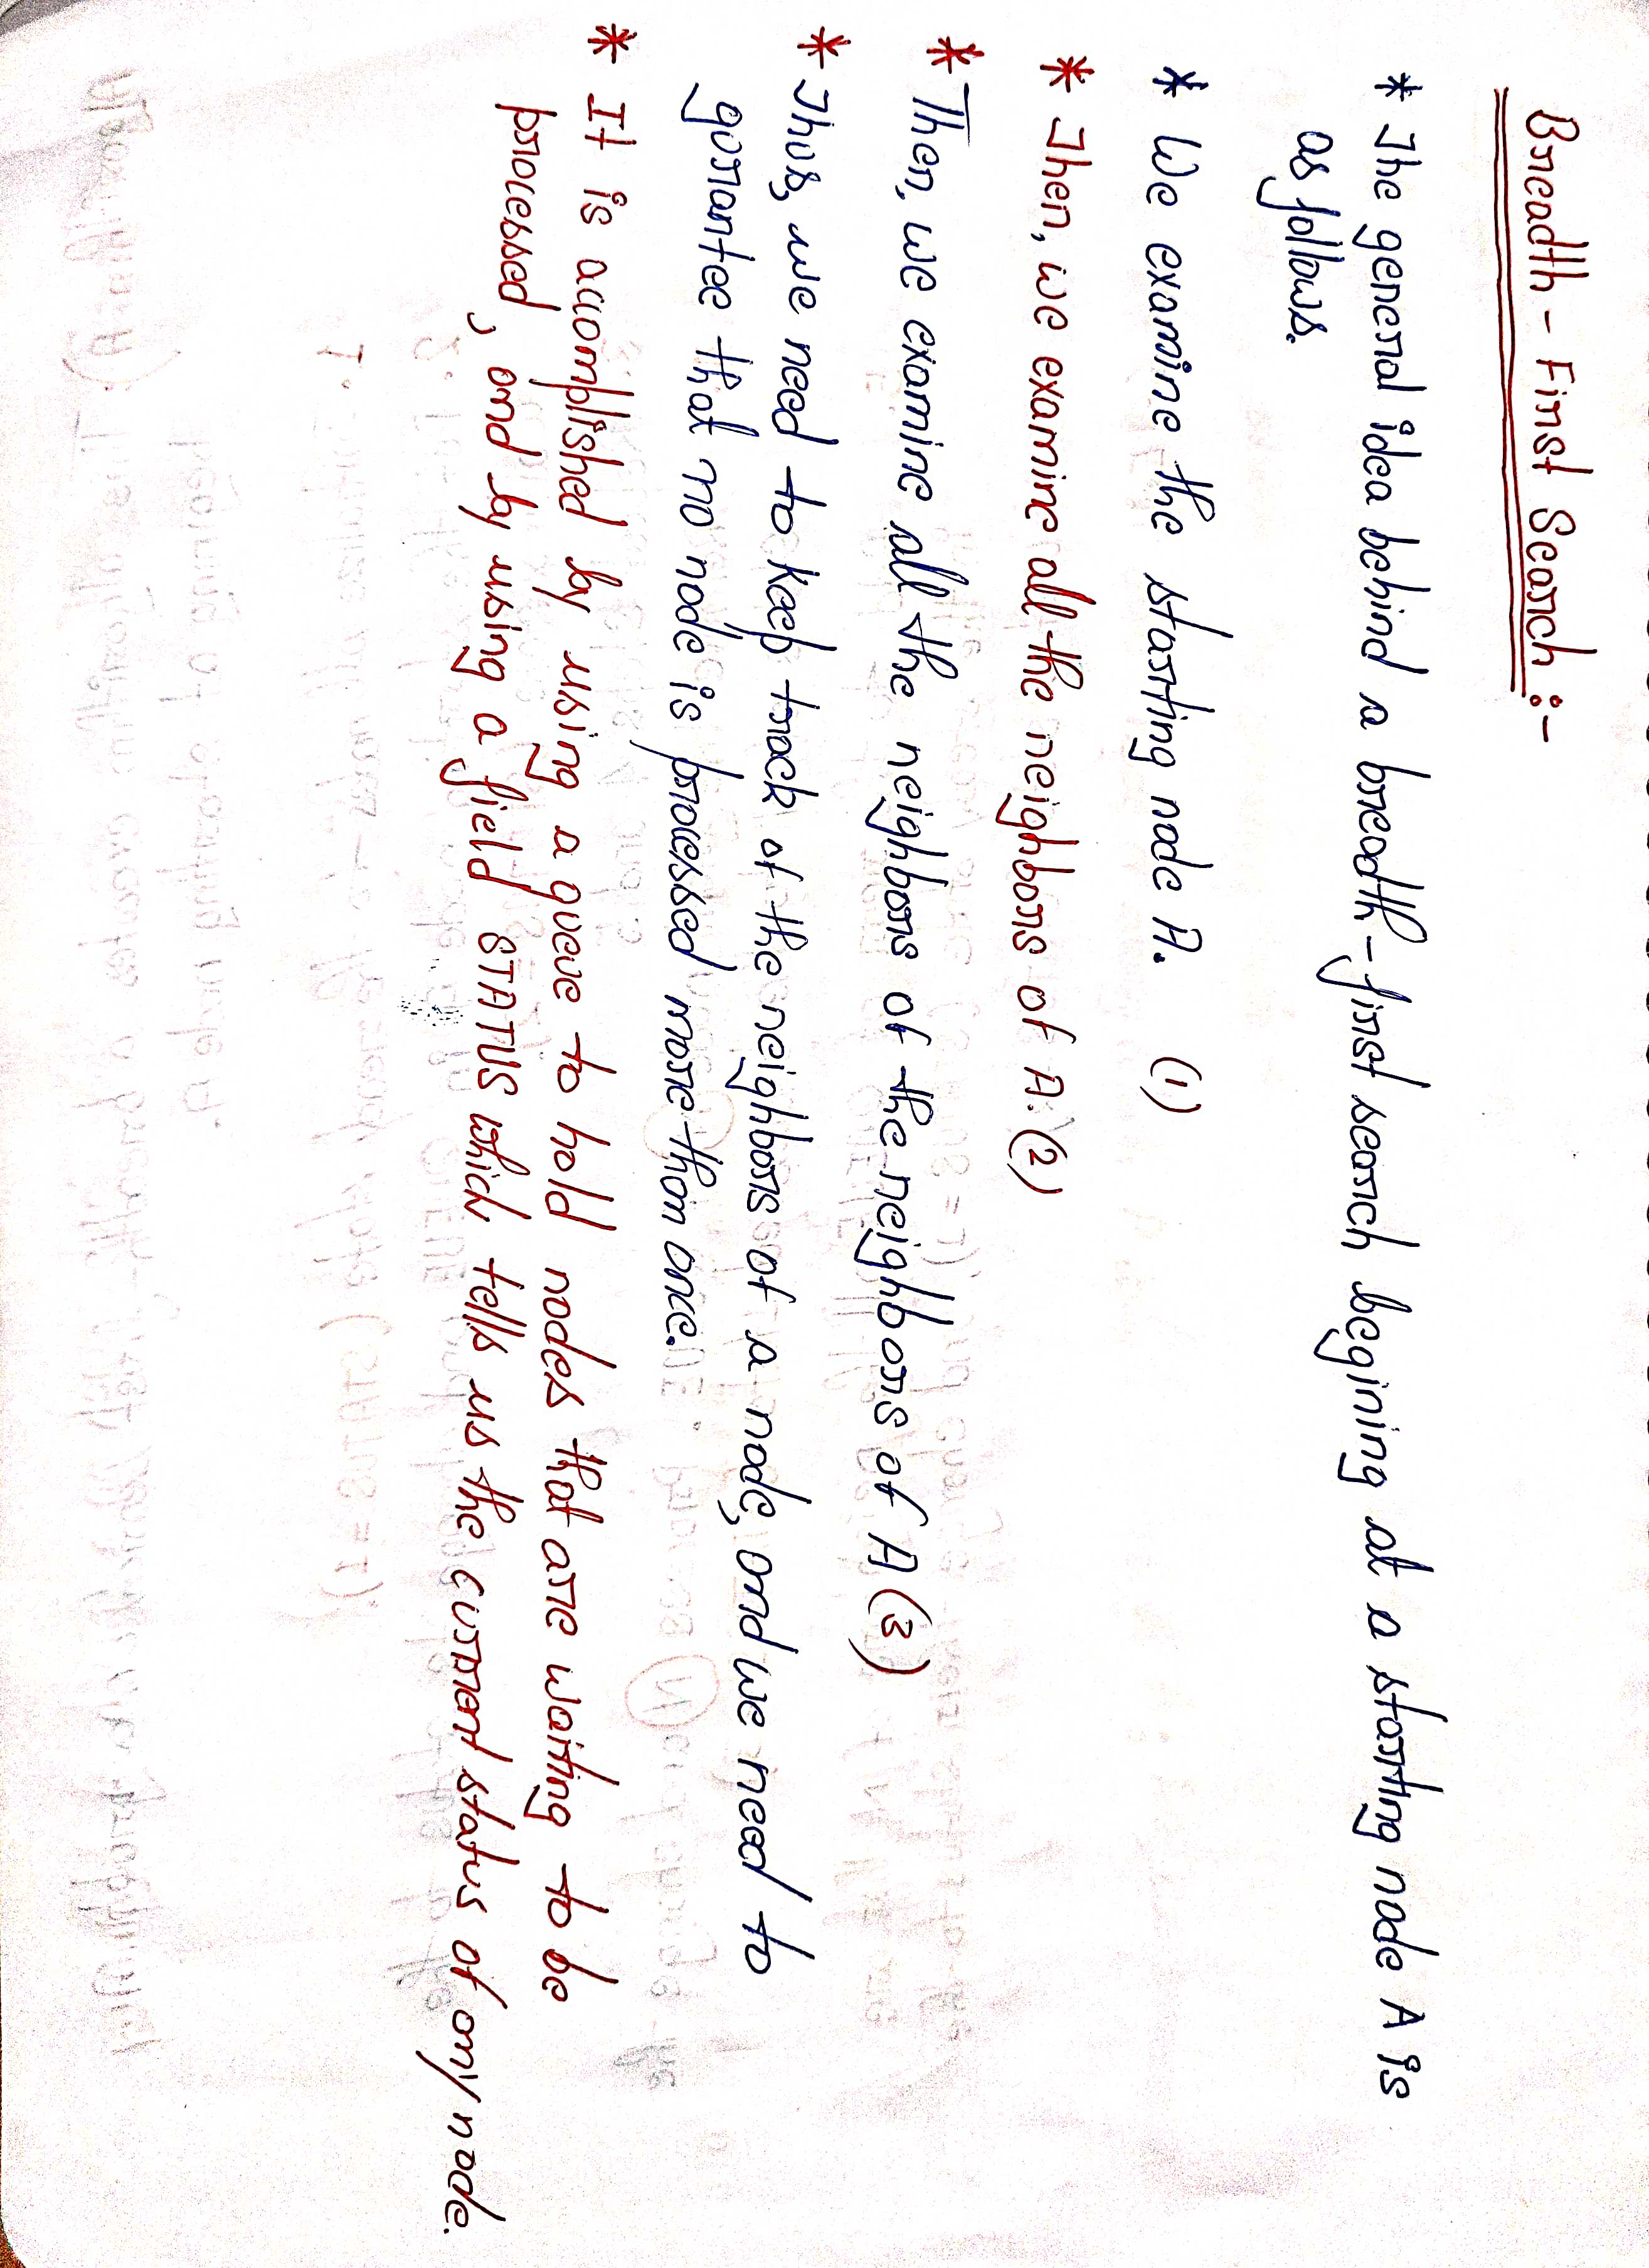 Breadth - First Search :-
* The general idea behind a breadth-first search begining at a starting node A is
as follows.
* We examine the starting node A. (1)
* Then, we examine all the neighbors of A. (2)
* Then, we examine all the neighbors of the neighbors of A (3)
* Thus, we need to keep track of the neighbors of a node, and we need to
gorantee that no node is processed more than once.
* It is accomplished by using a queue to hold nodes that are waiting to be
processed, and by using a field STATUS which tells us the current status of any node.